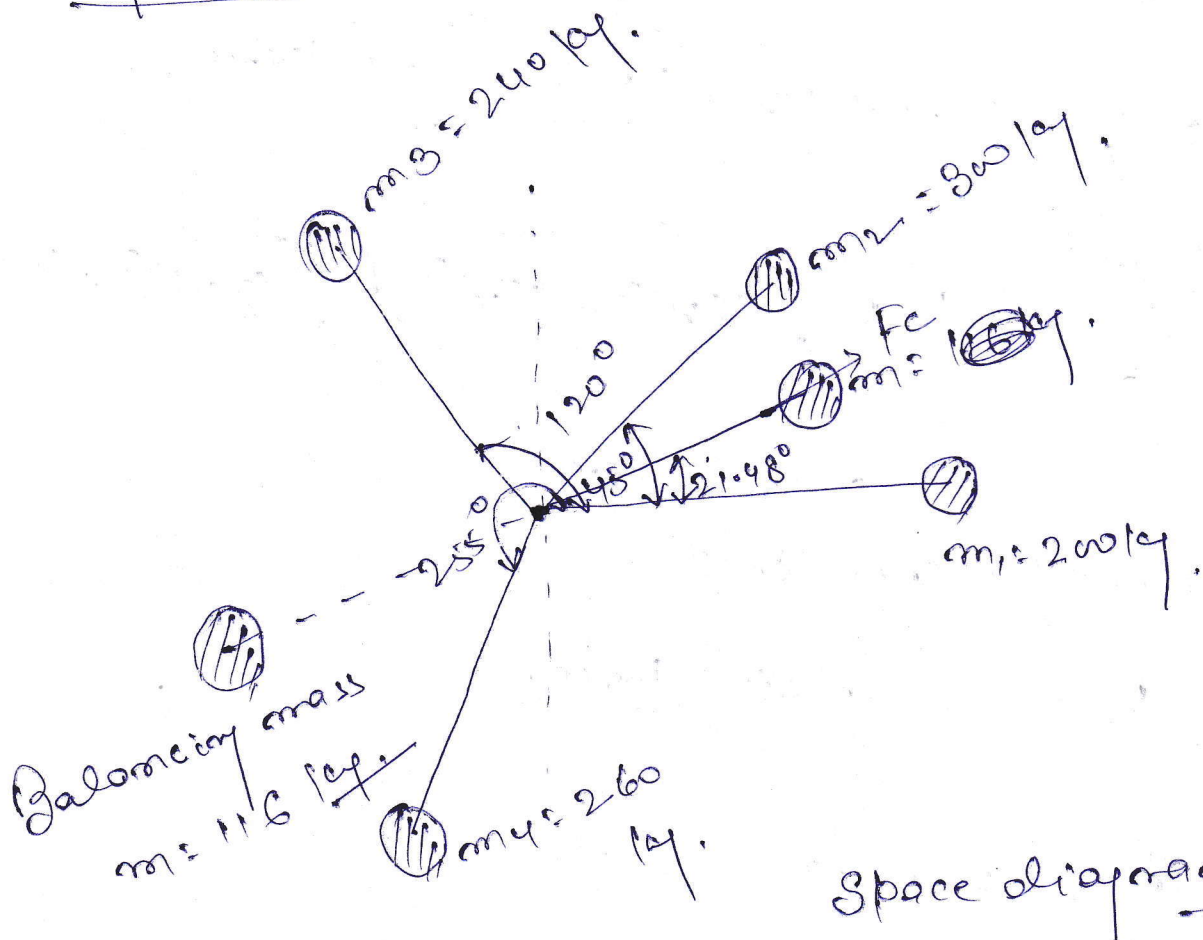 m3 = 240 kg.
m2 = 300 kg.
Fc
m = 116 kg.
120°
45°
21.48°
m1 = 200 kg.
255°
Balancing mass
m = 116 kg.
m4 = 260
kg.
Space diagra